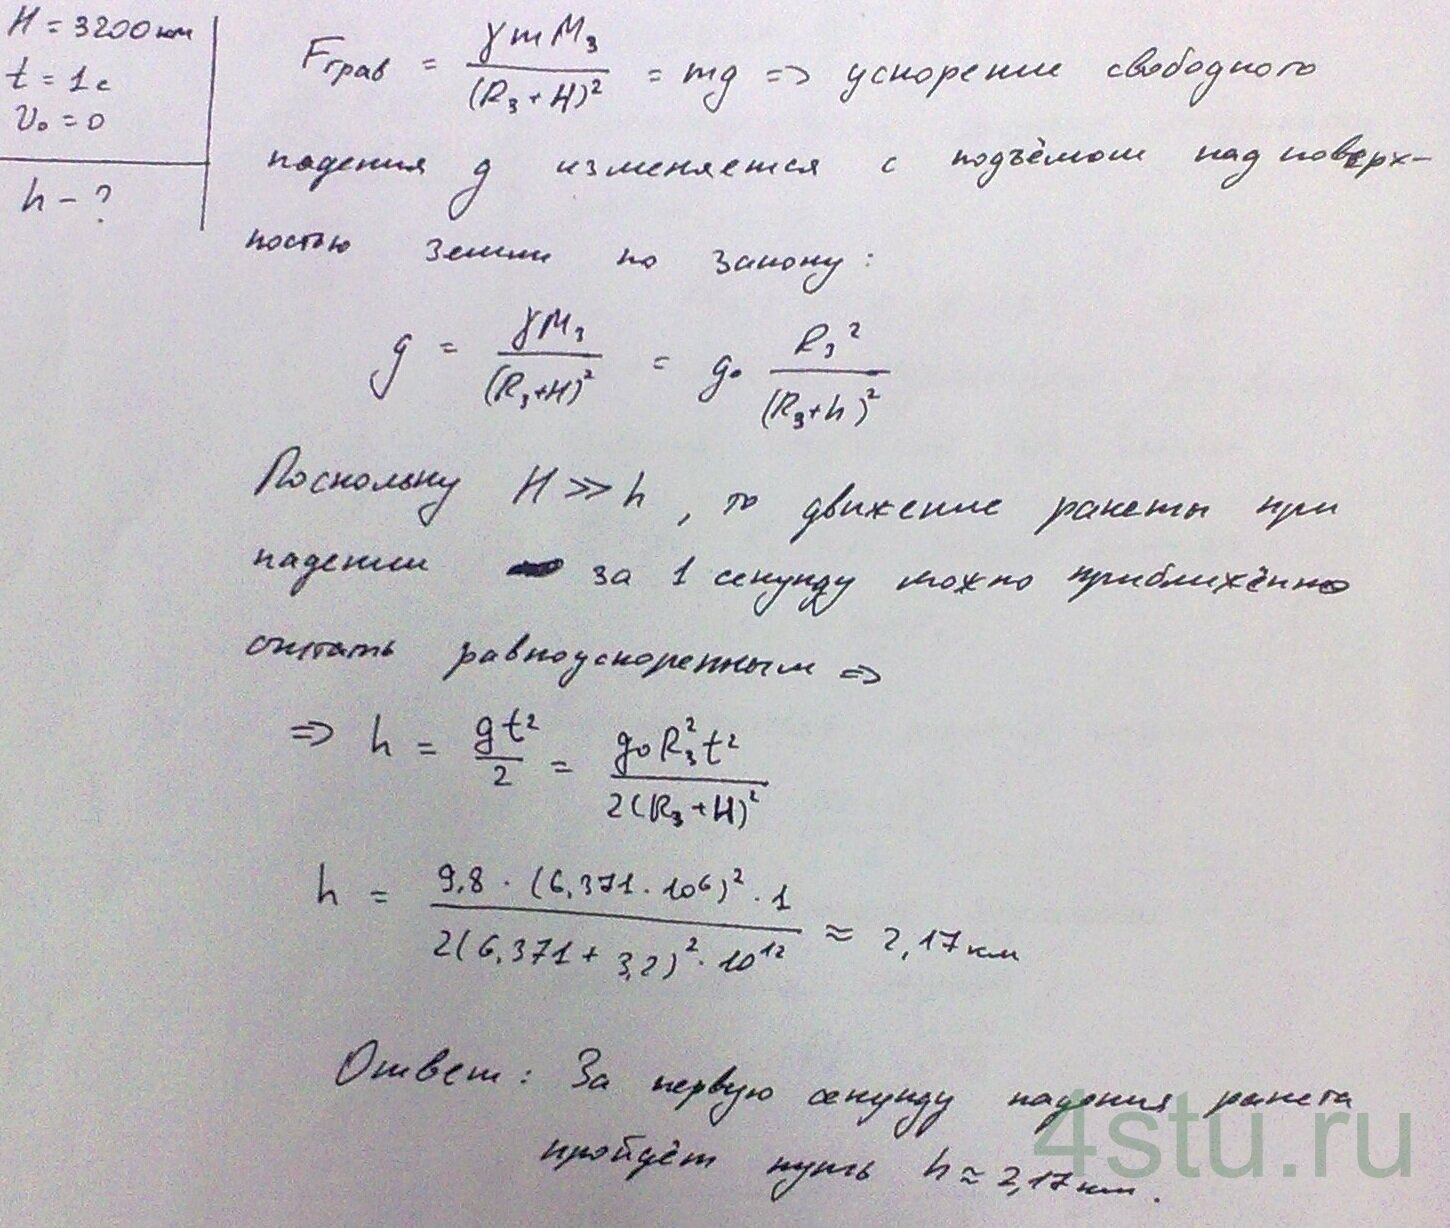 H = 3200 км
t = 1 с
v₀ = 0
h - ?
Fграв = γmMз / (Rз + H)² = mg => ускорение свободного
падения g изменяется с подъёмом над поверх-
ностью Земли по закону:
g = γMз / (Rз+H)² = g₀ Rз² / (Rз+h)²
Поскольку H >> h, то движение ракеты при
падении за 1 секунду можно приближённо
считать равноускоренным =>
=> h = gt² / 2 = g₀Rз²t² / 2(Rз+H)²
h = 9,8 · (6,371 · 10⁶)² · 1 / 2(6,371 + 3,2)² · 10¹² ≈ 2,17 км
Ответ: За первую секунду падения ракета
пройдёт путь h ≈ 2,17 км.
4stu.ru